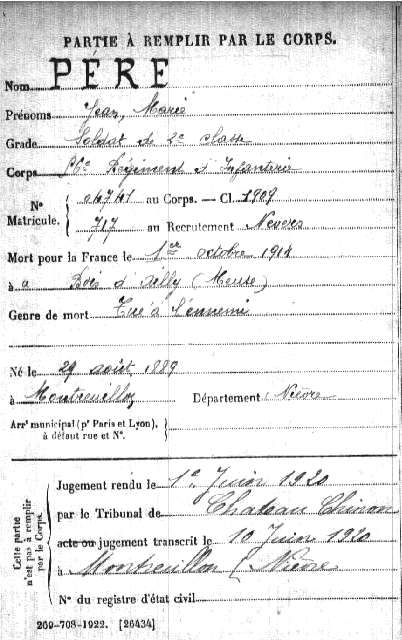 PARTIE À REMPLIR PAR LE CORPS.
Nom PERE
Prénoms Jean, Marie
Grade Soldat de 2e classe
Corps 56e Régiment d'Infanterie
N° Matricule. au Corps. — Cl. 1909
717 au Recrutement Nevers
Mort pour la France le 1er octobre 1914
à a Bois d'Ailly (Meuse)
Genre de mort Tué à l'ennemi
Né le 29 août 1889
à Montreuillon Département Nièvre
Arrt municipal (pr Paris et Lyon),
à défaut rue et N°.
Cette partie
n'est pas à remplir
par le Corps.
Jugement rendu le 1er Juin 1920
par le Tribunal de Chateau Chinon
acte ou jugement transcrit le 10 Juin 1920
à Montreuillon (Nièvre
N° du registre d'état civil
269-708-1922. [26434]